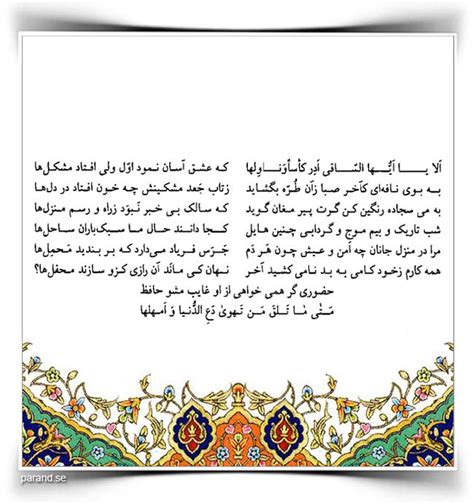 اَلا یا اَیُّها السّاقی اَدِر کَأساً وَ ناوِلها که عشق آسان نمود اوّل ولی افتاد مشکل‌ها
به بوی نافه‌ای کآخر صبا زان طُرّه بگشاید زتاب جَعد مشکینش چه خون افتاد در دل‌ها
به می سجاده رنگین کن گرت پیر مغان گوید که سالک بی خبر نَبوَد زراه و رسم منزل‌ها
شب تاریک و بیم موج و گردابی چنین هایل کجا دانند حال ما سبک‌باران ساحل‌ها
مرا در منزل جانان چه أمن و عیش چون هر دَم جَرَس فریاد می‌دارد که بر بندید مَحمِل‌ها
همه کارم زخود کامی به بد نامی کشید آخر نهان کی مانَد آن رازی کزو سازند محفل‌ها؟
حضوری گر همی خواهی از او غایب مشو حافظ
مَتٰی مٰا تَلقَ مَن تَهویٰ دَعِ الدُّنیا وَ اَمهلها
parand.se